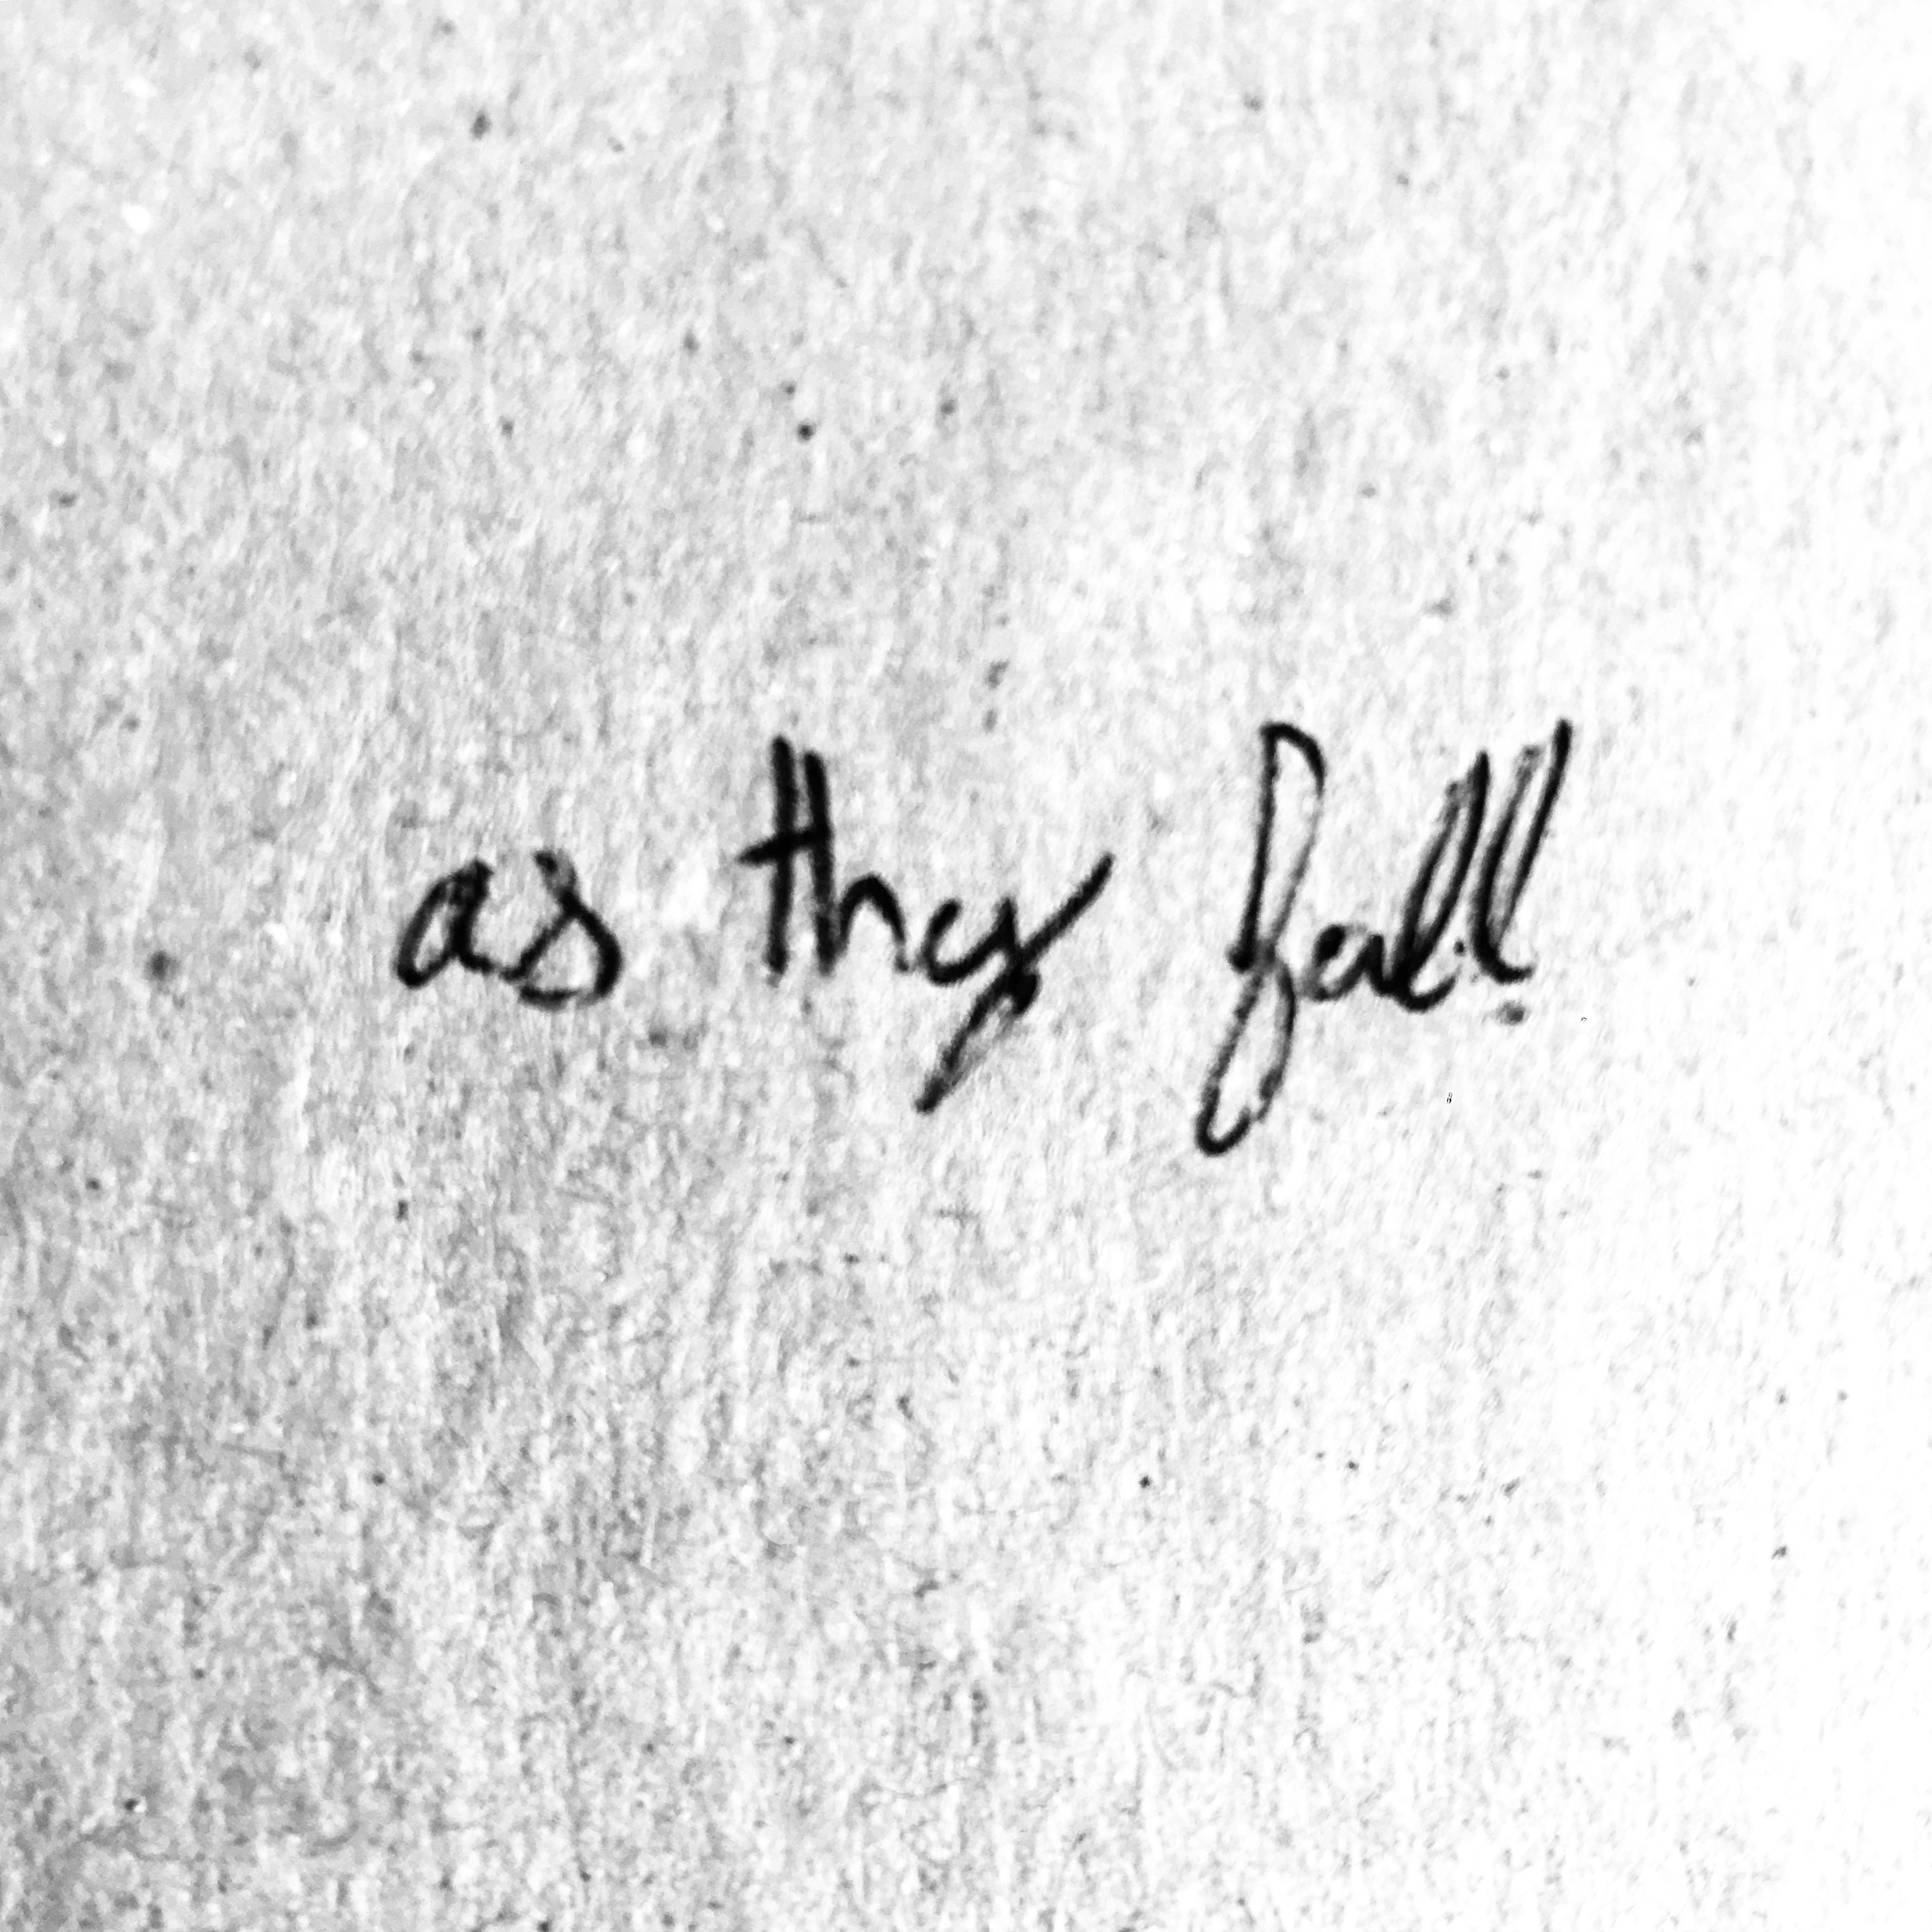 as they fall